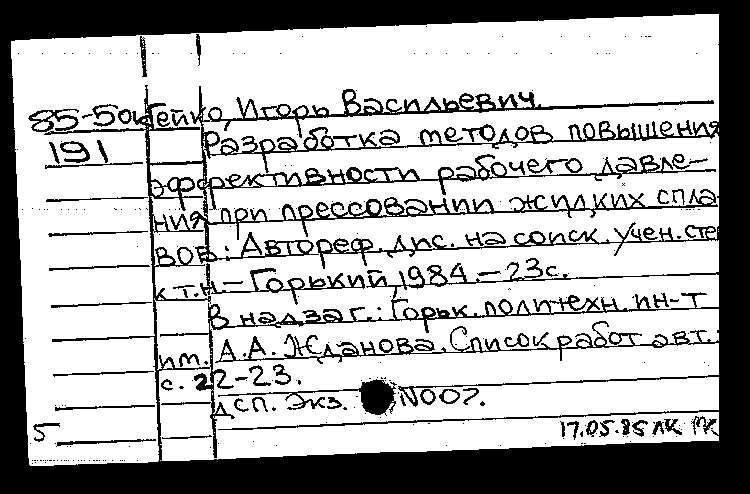 85-5ок Гейко, Игорь Васильевич.
191 Разработка методов повышения
эффективности рабочего давле-
ния при прессовании жидких спла-
вов: Автореф. дис. на соиск. учен. степ
к.т.н. – Горький, 1984. – 23с.
В надзаг.: Горьк. политехн. ин-т
им. А.А. Жданова. Список работ авт.:
с. 22-23.
ДСП. Экз. N007.
5 17.05.85 ЛК ГК